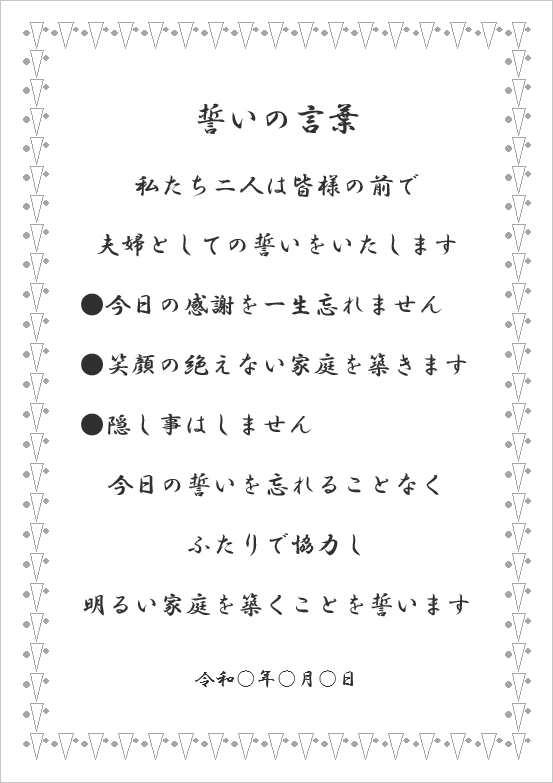 誓いの言葉
私たち二人は皆様の前で
夫婦としての誓いをいたします
●今日の感謝を一生忘れません
●笑顔の絶えない家庭を築きます
●隠し事はしません
今日の誓いを忘れることなく
ふたりで協力し
明るい家庭を築くことを誓います
令和〇年〇月〇日